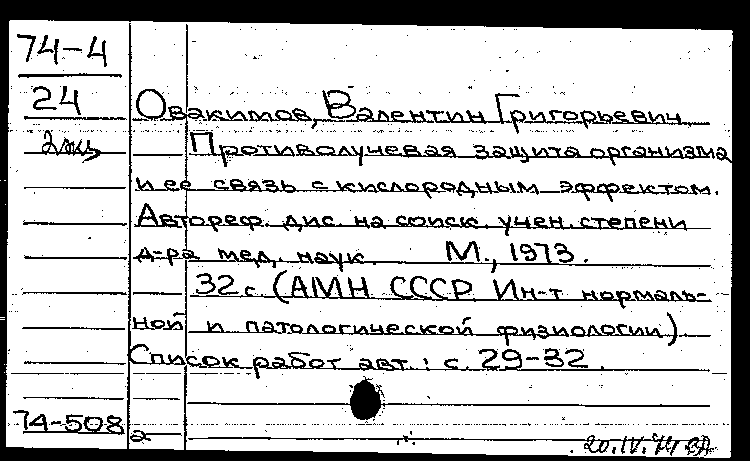 74-4
24
2 экз
Овакимов, Валентин Григорьевич
Противолучевая защита организма
и ее связь с кислородным эффектом.
Автореф. дис. на соиск. учен. степени
д-ра мед. наук. М., 1973.
32 с. (АМН СССР Ин-т нормаль-
ной и патологической физиологии).
Список работ авт.: с. 29-32.
74-508
а
20.IV.74